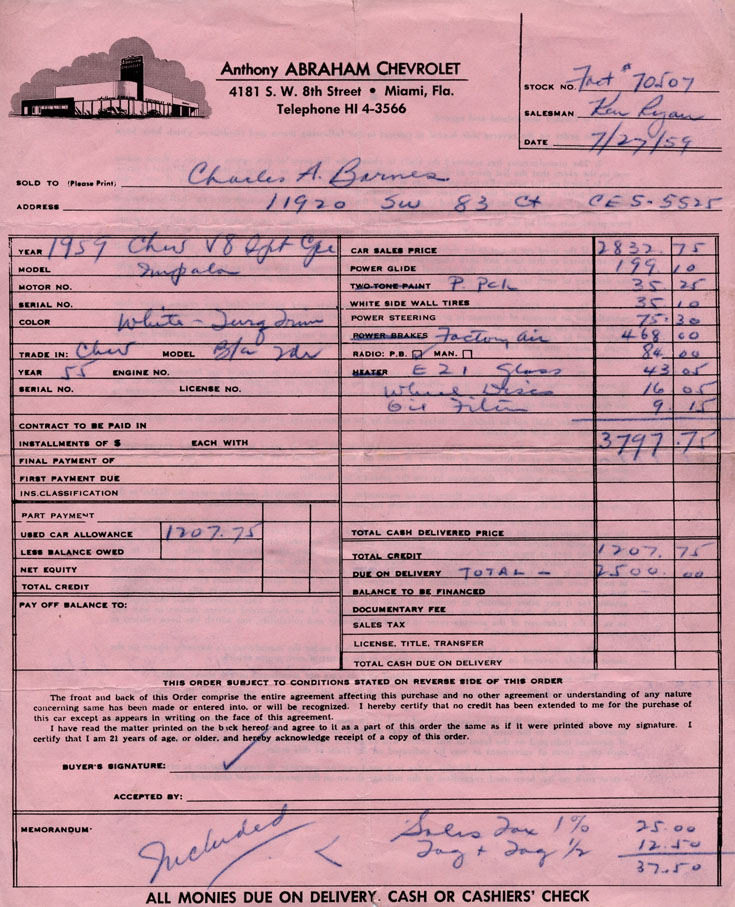 Anthony ABRAHAM CHEVROLET
4181 S. W. 8th Street • Miami, Fla.
Telephone HI 4-3566
STOCK NO. Fact # 70507
SALESMAN Ken Ryan
DATE 7/27/59
SOLD TO (Please Print) Charles A. Barnes
ADDRESS 11920 SW 83 Ct CE 5-5525
YEAR 1959 Chev V8 Spt Cpe
MODEL Impala
MOTOR NO.
SERIAL NO.
COLOR White - Turq Trim
TRADE IN: Chev MODEL B/a 2dr
YEAR 55 ENGINE NO.
SERIAL NO. LICENSE NO.
CONTRACT TO BE PAID IN
INSTALLMENTS OF $ EACH WITH
FINAL PAYMENT OF
FIRST PAYMENT DUE
INS. CLASSIFICATION
PART PAYMENT
USED CAR ALLOWANCE 1207.75
LESS BALANCE OWED
NET EQUITY
TOTAL CREDIT
PAY OFF BALANCE TO:
CAR SALES PRICE 2832.75
POWER GLIDE 199 10
TWO-TONE PAINT P. Pck 35 25
WHITE SIDE WALL TIRES 35 10
POWER STEERING 75.30
POWER BRAKES Factory Air 468 00
RADIO: P.B. MAN. 84 00
HEATER E Z I Glass 43 05
Wheel Discs 16 05
Oil Filter 9 15
3797.75
TOTAL CASH DELIVERED PRICE
TOTAL CREDIT 1207.75
DUE ON DELIVERY TOTAL - 2500.00
BALANCE TO BE FINANCED
DOCUMENTARY FEE
SALES TAX
LICENSE, TITLE, TRANSFER
TOTAL CASH DUE ON DELIVERY
THIS ORDER SUBJECT TO CONDITIONS STATED ON REVERSE SIDE OF THIS ORDER
The front and back of this Order comprise the entire agreement affecting this purchase and no other agreement or understanding of any nature
concerning same has been made or entered into, or will be recognized. I hereby certify that no credit has been extended to me for the purchase of
this car except as appears in writing on the face of this agreement.
I have read the matter printed on the back hereof and agree to it as a part of this order the same as if it were printed above my signature. I
certify that I am 21 years of age, or older, and hereby acknowledge receipt of a copy of this order.
BUYER'S SIGNATURE:
ACCEPTED BY:
MEMORANDUM:
Included
Sales Tax 1% 25.00
Tag + Tag 1/2 12.50
37.50
ALL MONIES DUE ON DELIVERY. CASH OR CASHIERS' CHECK